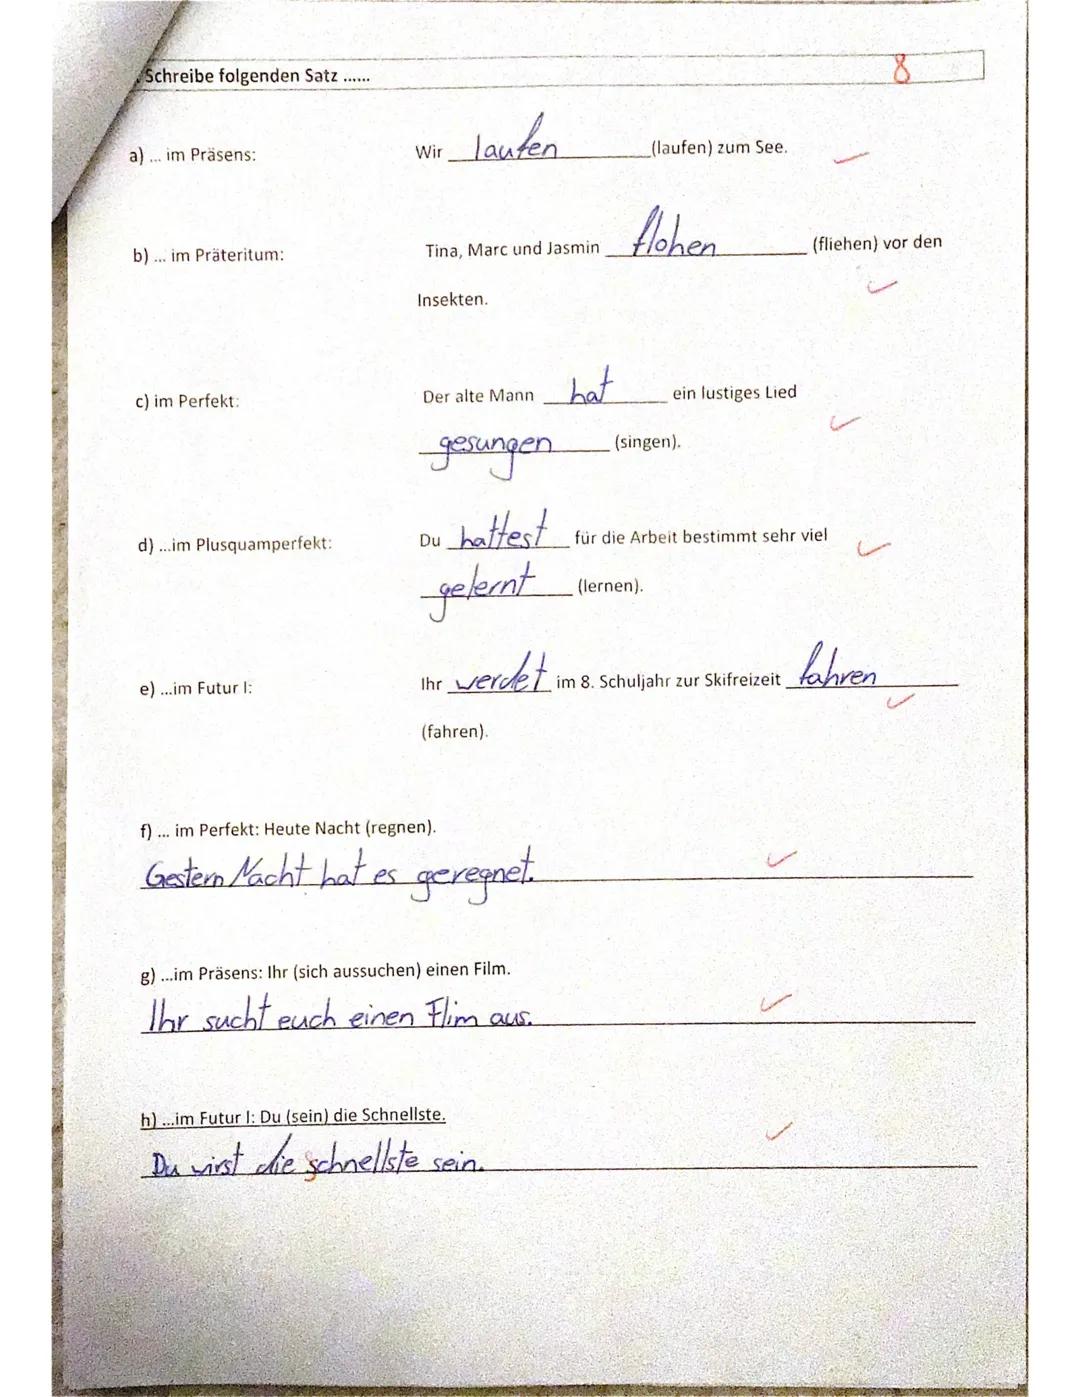 Schreibe folgenden Satz ...... 8
a) ... im Präsens: Wir laufen (laufen) zum See.
b) ... im Präteritum: Tina, Marc und Jasmin flohen (fliehen) vor den
Insekten.
c) im Perfekt: Der alte Mann hat ein lustiges Lied
gesungen (singen).
d) ...im Plusquamperfekt: Du hattest für die Arbeit bestimmt sehr viel
gelernt (lernen).
e) ...im Futur I: Ihr werdet im 8. Schuljahr zur Skifreizeit fahren
(fahren).
f) ... im Perfekt: Heute Nacht (regnen).
Gestern Nacht hat es geregnet.
g) ...im Präsens: Ihr (sich aussuchen) einen Film.
Ihr sucht euch einen Flim aus.
h) ...im Futur I: Du (sein) die Schnellste.
Du wirst die schnellste sein.